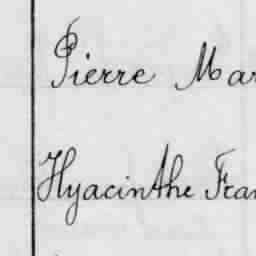 Pierre Mar
Hyacinthe Fran